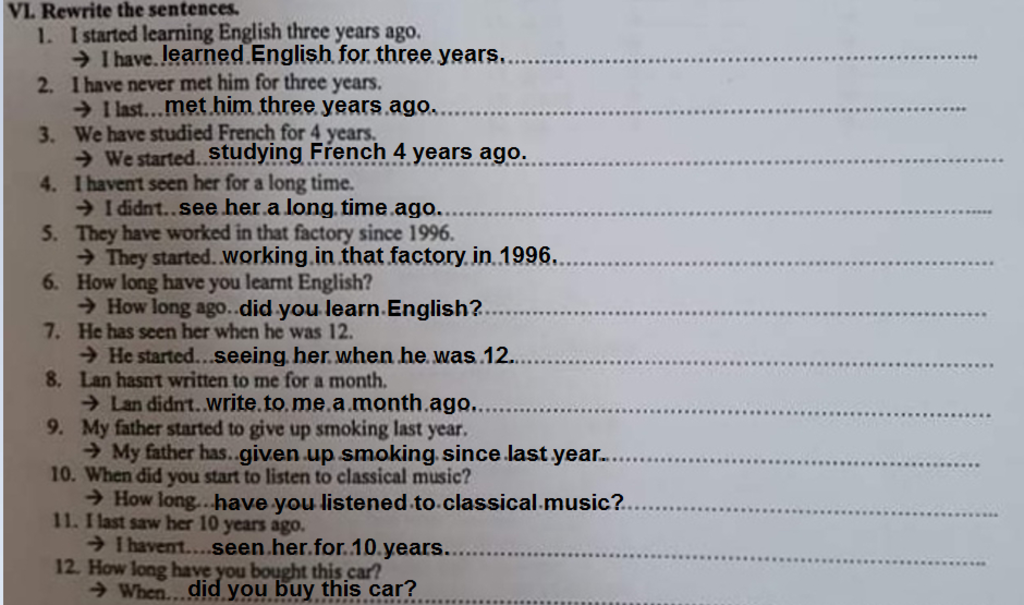 VI. Rewrite the sentences.
1. I started learning English three years ago.
→ I have..learned English for three years.
2. I have never met him for three years.
→ I last...met him three years ago.
3. We have studied French for 4 years.
→ We started..studying French 4 years ago.
4. I haven't seen her for a long time.
→ I didn't..see her a long time ago.
5. They have worked in that factory since 1996.
→ They started..working in that factory in 1996.
6. How long have you learnt English?
→ How long ago..did you learn English?
7. He has seen her when he was 12.
→ He started...seeing her when he was 12.
8. Lan hasn't written to me for a month.
→ Lan didn't..write to me a month ago.
9. My father started to give up smoking last year.
→ My father has..given up smoking since last year.
10. When did you start to listen to classical music?
→ How long...have you listened to classical music?
11. I last saw her 10 years ago.
→ I haven't....seen her for 10 years.
12. How long have you bought this car?
→ When...did you buy this car?